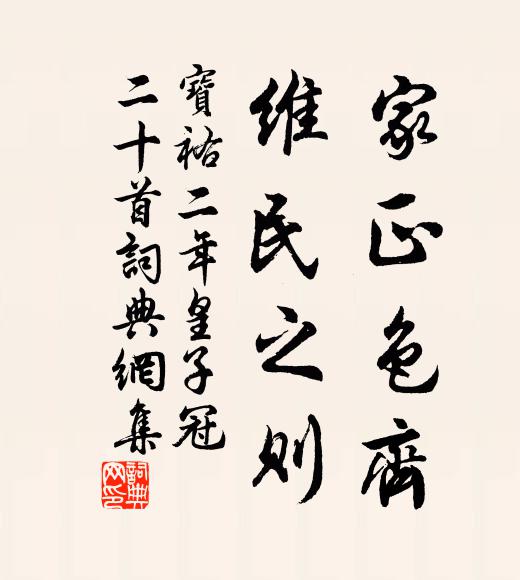 家正色齊
維民之則
寶祐二年皇子冠
二十首詞典網集
詞典網印